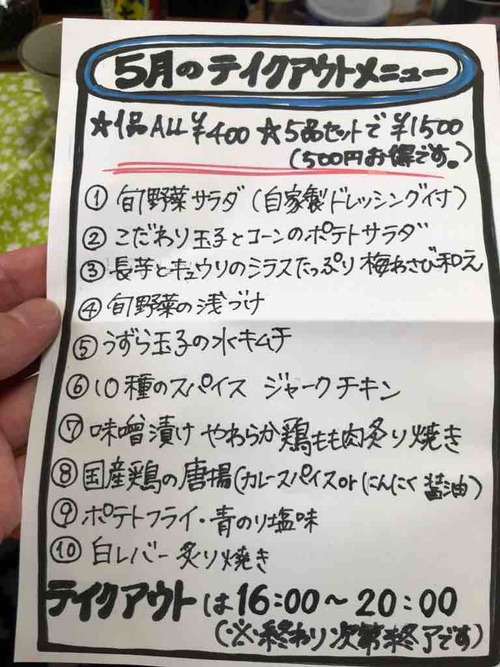 5月のテイクアウトメニュー
☆1品ALL ¥400 ☆5品セットで ¥1500
(500円お得です。)
① 旬野菜サラダ (自家製ドレッシング付)
② こだわり玉子とコーンのポテトサラダ
③ 長芋とキュウリのシラスたっぷり 梅わさび和え
④ 旬野菜の浅づけ
⑤ うずら玉子の水キムチ
⑥ 10種のスパイス ジャークチキン
⑦ 味噌漬け やわらか鶏もも肉炙り焼き
⑧ 国産鶏の唐揚(カレースパイスor にんにく醤油)
⑨ ポテトフライ・青のり塩味
⑩ 白レバー 炙り焼き
テイクアウトは16:00〜20:00
(※終わり次第終了です)